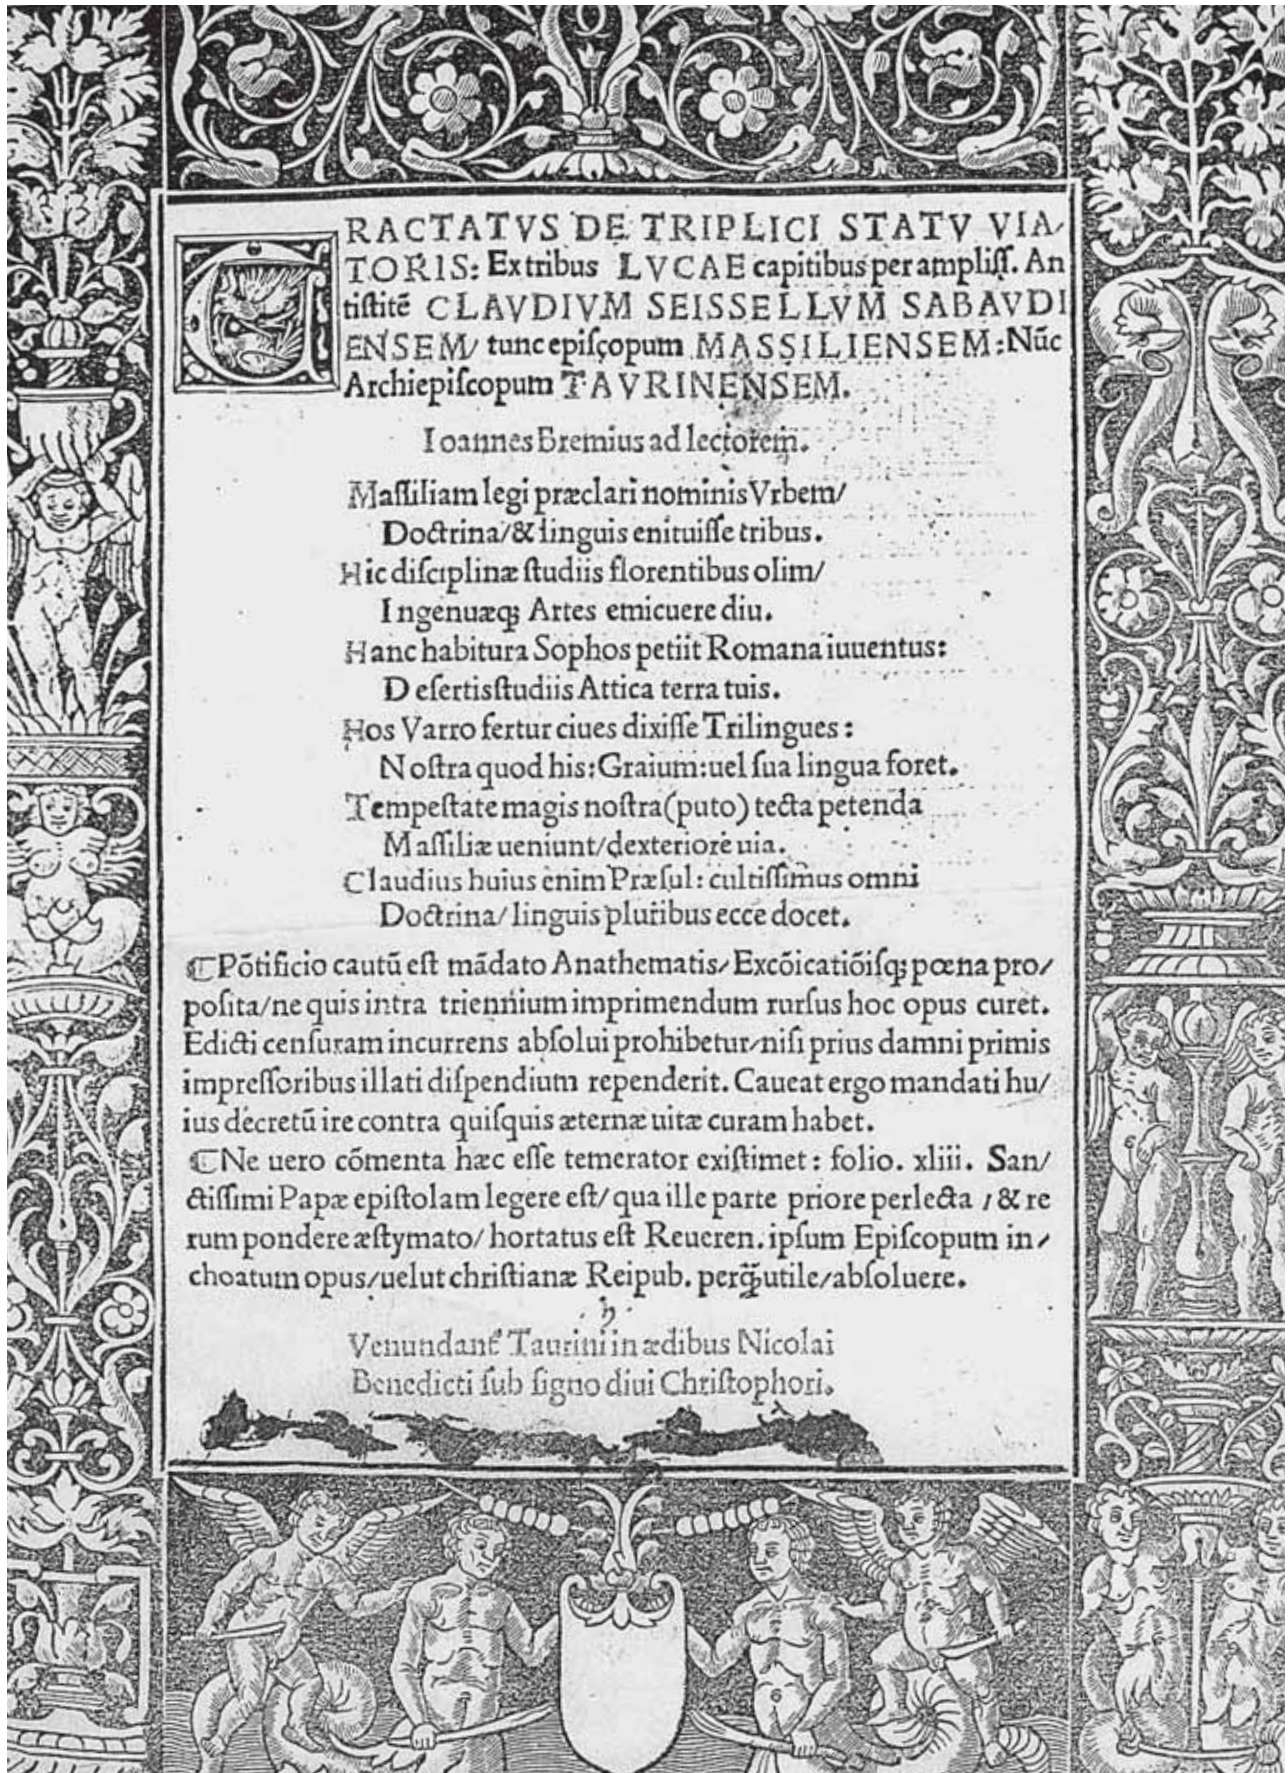 TRACTATVS DE TRIPLICI STATV VIA/
TORIS: Ex tribus LVCAE capitibus per ampliſſ. An
tiſtitē CLAVDIVM SEISSELLVM SABAVDI
ENSEM/ tunc epiſcopum MASSILIENSEM: Nūc
Archiepiſcopum TAVRINENSEM.
Ioannes Bremius ad lectorem.
Maſſiliam legi præclari nominis Vrbem/
Doctrina/ & linguis enituiſſe tribus.
Hic diſciplinæ ſtudiis florentibus olim/
Ingenuæqꝫ Artes emicuere diu.
Hanc habitura Sophos petiit Romana iuuentus:
Deſertis ſtudiis Attica terra tuis.
Hos Varro fertur ciues dixiſſe Trilingues:
Noſtra quod his: Graium: uel ſua lingua foret.
Tempeſtate magis noſtra (puto) tecta petenda
Maſſiliæ ueniunt/ dexteriore uia.
Claudius huius enim Præſul: cultiſſimus omni
Doctrina/ linguis pluribus ecce docet.
⸿Pōtificio cautū eſt mādato Anathematis/ Excōicatiōiſqꝫ pœna pro/
poſita/ ne quis intra triennium imprimendum rurſus hoc opus curet.
Edicti cenſuram incurrens abſolui prohibetur/ niſi prius damni primis
impreſſoribus illati diſpendium rependerit. Caueat ergo mandati hu/
ius decretū ire contra quiſquis æternæ uitæ curam habet.
⸿Ne uero cōmenta hæc eſſe temerator exiſtimet: folio. xliii. San/
ctiſſimi Papæ epiſtolam legere eſt/ qua ille parte priore perlecta / & re
rum pondere æſtymato/ hortatus eſt Reueren. ipſum Epiſcopum in/
choatum opus/ uelut chriſtianæ Reipub. perq̄ꝫ utile/ abſoluere.
Venundant᷑ Taurini in ædibus Nicolai
Benedicti ſub ſigno diui Chriſtophori.